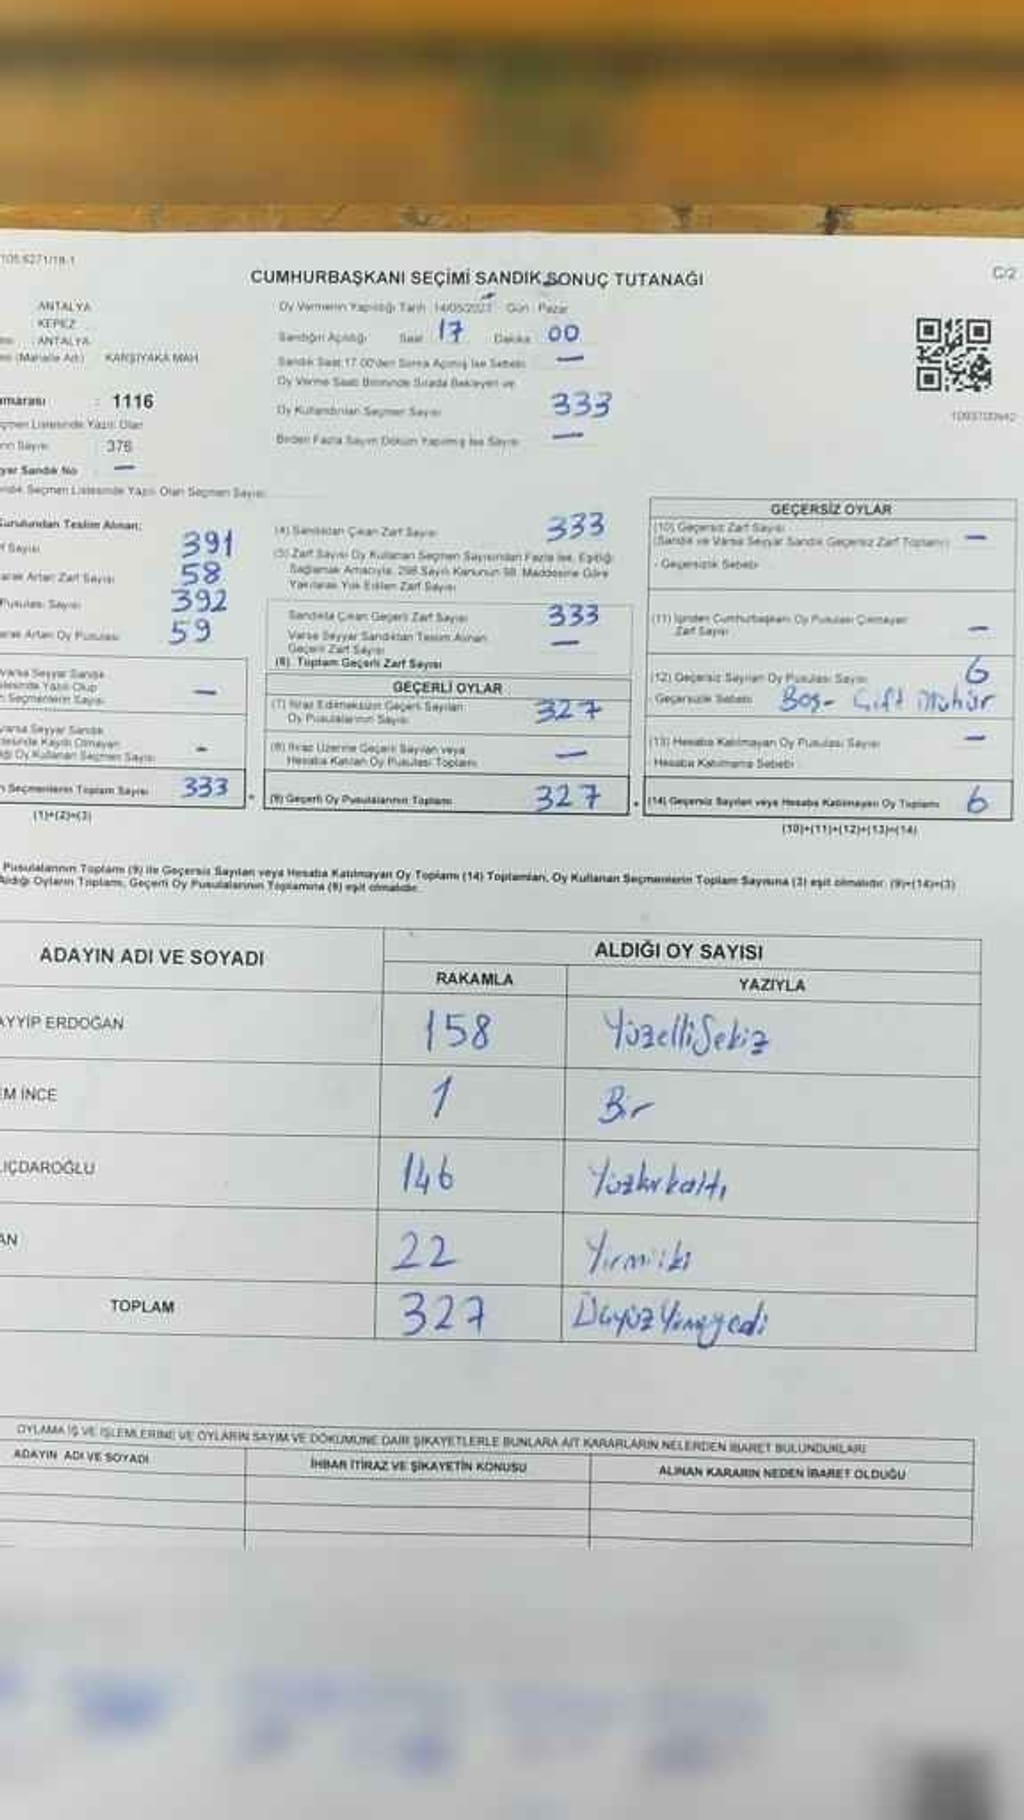 CUMHURBAŞKANI SEÇİMİ SANDIK SONUÇ TUTANAĞI
C/2
ANTALYA
KEPEZ
ANTALYA
(Mahalle Adı) KARŞIYAKA MAH.
Oy Vermenin Yapıldığı Tarih 14/05/2023 Gün : Pazar
Sandığın Açıldığı Saat 17 Dakika 00
Sandık Saat 17.00'den Sonra Açılmış İse Sebebi —
Oy Verme Saati Bitiminde Sırada Bekleyen ve
Oy Kullandırılan Seçmen Sayısı 333
Birden Fazla Sayım Döküm Yapılmış İse Sayısı —
: 1116
Listesinde Yazılı Olan
Sayısı 376
Sandık No —
Seçmen Listesinde Yazılı Olan Seçmen Sayısı
Kurulundan Teslim Alınan:
Sayısı 391
Artan Zarf Sayısı 58
Pusulası Sayısı 392
Artan Oy Pusulası 59
Varsa Seyyar Sandık
Yazılı Olup
Seçmenlerin Sayısı —
Varsa Seyyar Sandık
Kayıtlı Olmayan
Oy Kullanan Seçmen Sayısı -
Seçmenlerin Toplam Sayısı 333
(1)+(2)=(3)
(4) Sandıktan Çıkan Zarf Sayısı 333
(5) Zarf Sayısı Oy Kullanan Seçmen Sayısından Fazla İse, Eşitliği
Sağlamak Amacıyla, 298 Sayılı Kanunun 98. Maddesine Göre
Yakılarak Yok Edilen Zarf Sayısı
Sandıkta Çıkan Geçerli Zarf Sayısı 333
Varsa Seyyar Sandıktan Teslim Alınan
Geçerli Zarf Sayısı —
(6). Toplam Geçerli Zarf Sayısı
GEÇERLİ OYLAR
(7) İtiraz Edilmeksizin Geçerli Sayılan
Oy Pusulalarının Sayısı 327
(8) İtiraz Üzerine Geçerli Sayılan veya
Hesaba Katılan Oy Pusulası Toplamı —
(9) Geçerli Oy Pusulalarının Toplamı 327
GEÇERSİZ OYLAR
(10) Geçersiz Zarf Sayısı
(Sandık ve Varsa Seyyar Sandık Geçersiz Zarf Toplamı) —
- Geçersizlik Sebebi
(11) İçinden Cumhurbaşkanı Oy Pusulası Çıkmayan
Zarf Sayısı —
(12) Geçersiz Sayılan Oy Pusulası Sayısı 6
Geçersizlik Sebebi Boş - Çift Mühür
(13) Hesaba Katılmayan Oy Pusulası Sayısı —
Hesaba Katılmama Sebebi
(14) Geçersiz Sayılan veya Hesaba Katılmayan Oy Toplamı 6
(10)+(11)+(12)+(13)=(14)
Pusulalarının Toplamı (9) ile Geçersiz Sayılan veya Hesaba Katılmayan Oy Toplamı (14) Toplamları, Oy Kullanan Seçmenlerin Toplam Sayısına (3) eşit olmalıdır. (9)+(14)=(3)
Aldığı Oyların Toplamı, Geçerli Oy Pusulalarının Toplamına (9) eşit olmalıdır.
ADAYIN ADI VE SOYADI ALDIĞI OY SAYISI
RAKAMLA YAZIYLA
AYYİP ERDOĞAN 158 Yüzellisekiz
EM İNCE 1 Bir
LIÇDAROĞLU 146 Yüzkırkaltı
AN 22 Yirmiiki
TOPLAM 327 Üçyüzyirmiyedi
OYLAMA İŞ VE İŞLEMLERİNE VE OYLARIN SAYIM VE DÖKÜMÜNE DAİR ŞİKAYETLERLE BUNLARA AİT KARARLARIN NELERDEN İBARET BULUNDUKLARI
ADAYIN ADI VE SOYADI İHBAR İTİRAZ VE ŞİKAYETİN KONUSU ALINAN KARARIN NEDEN İBARET OLDUĞU